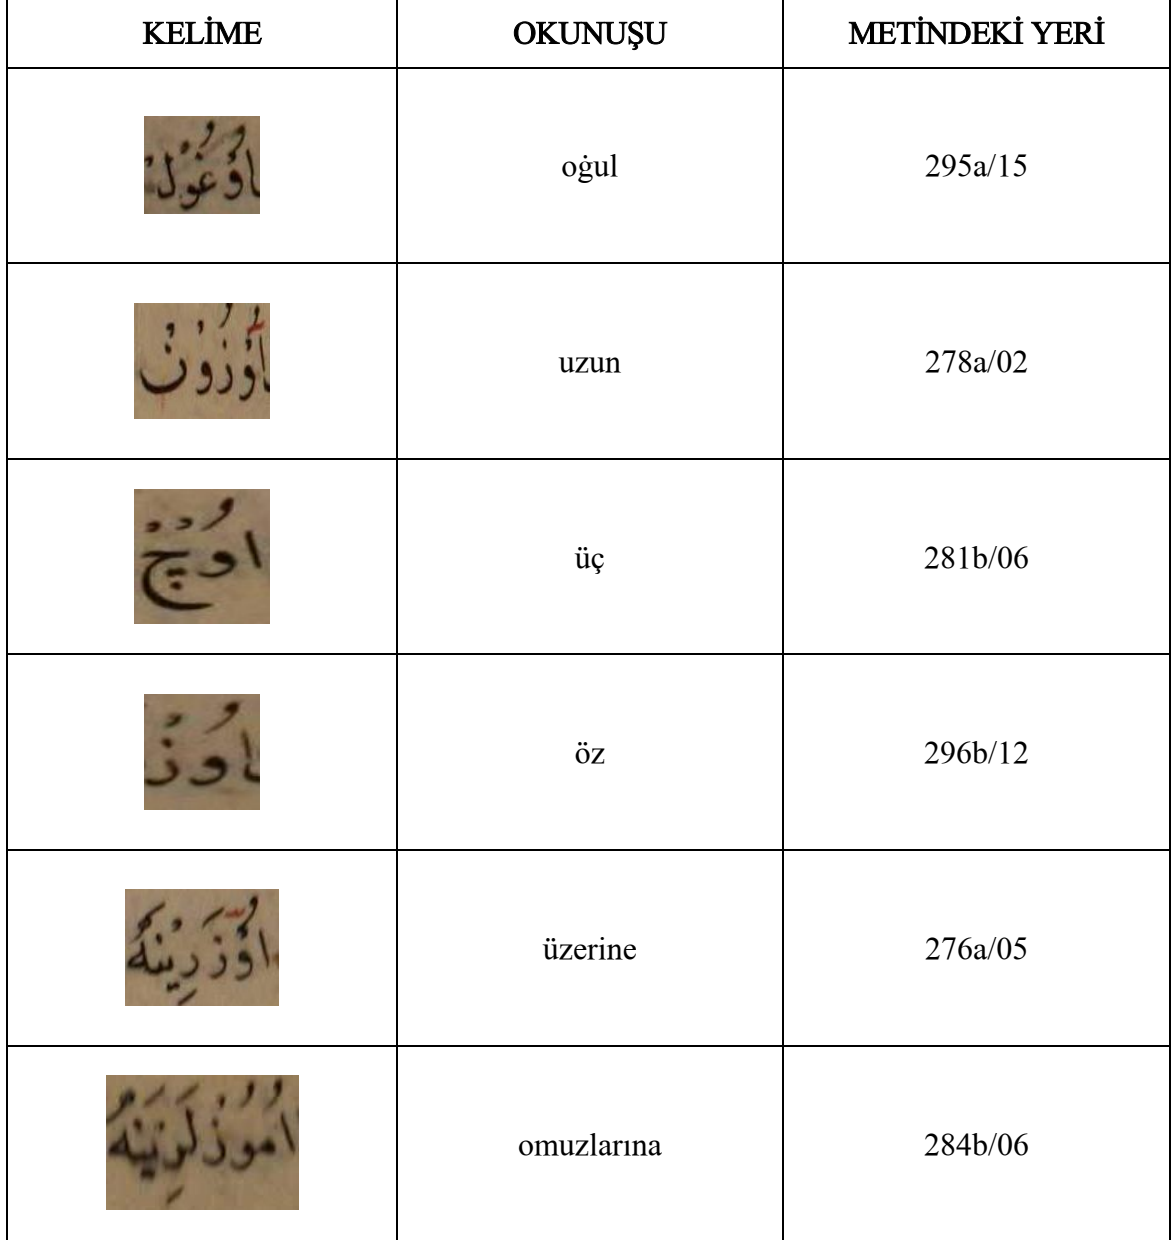 KELİME OKUNUŞU METİNDEKİ YERİ
اُوغُولْ oġul 295a/15
اُوزُونْ uzun 278a/02
اوُچْ üç 281b/06
اوُزْ öz 296b/12
اُوزَرِينْهُ üzerine 276a/05
اُمُوزْلَرِينَهُ omuzlarına 284b/06